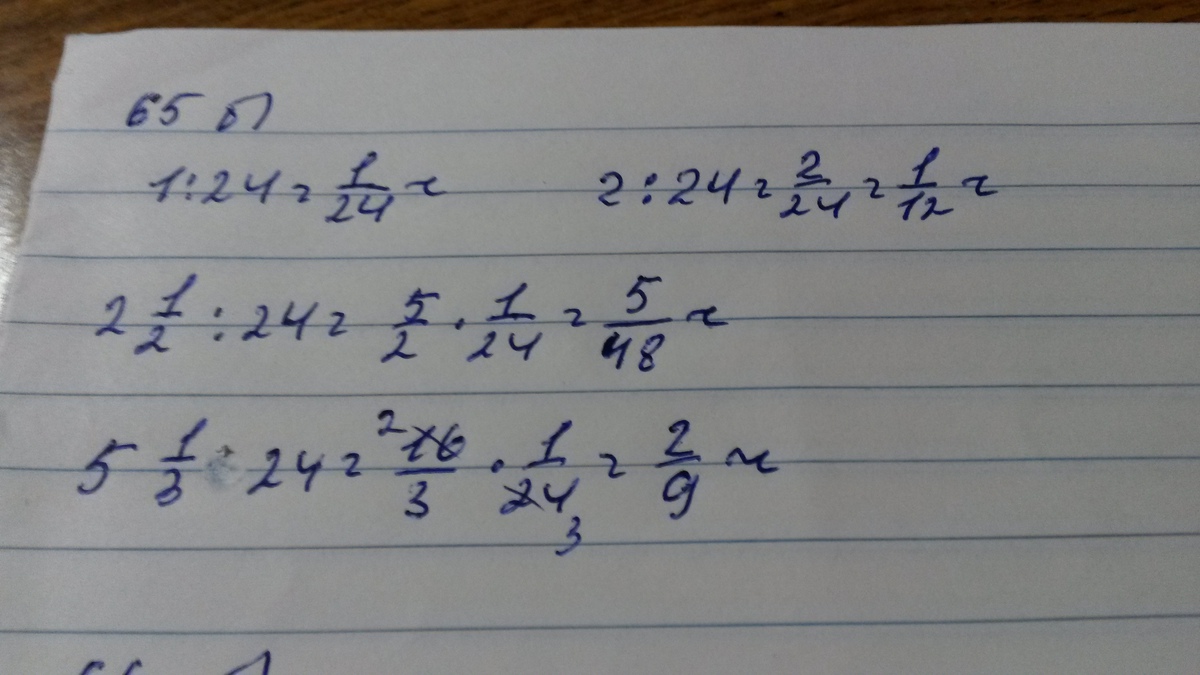 65 б)
1:24 = 1/24 ч 2:24 = 2/24 = 1/12 ч
2 1/2 : 24 = 5/2 · 1/24 = 5/48 ч
5 1/3 : 24 = 2 16/3 · 1/24 3 = 2/9 ч